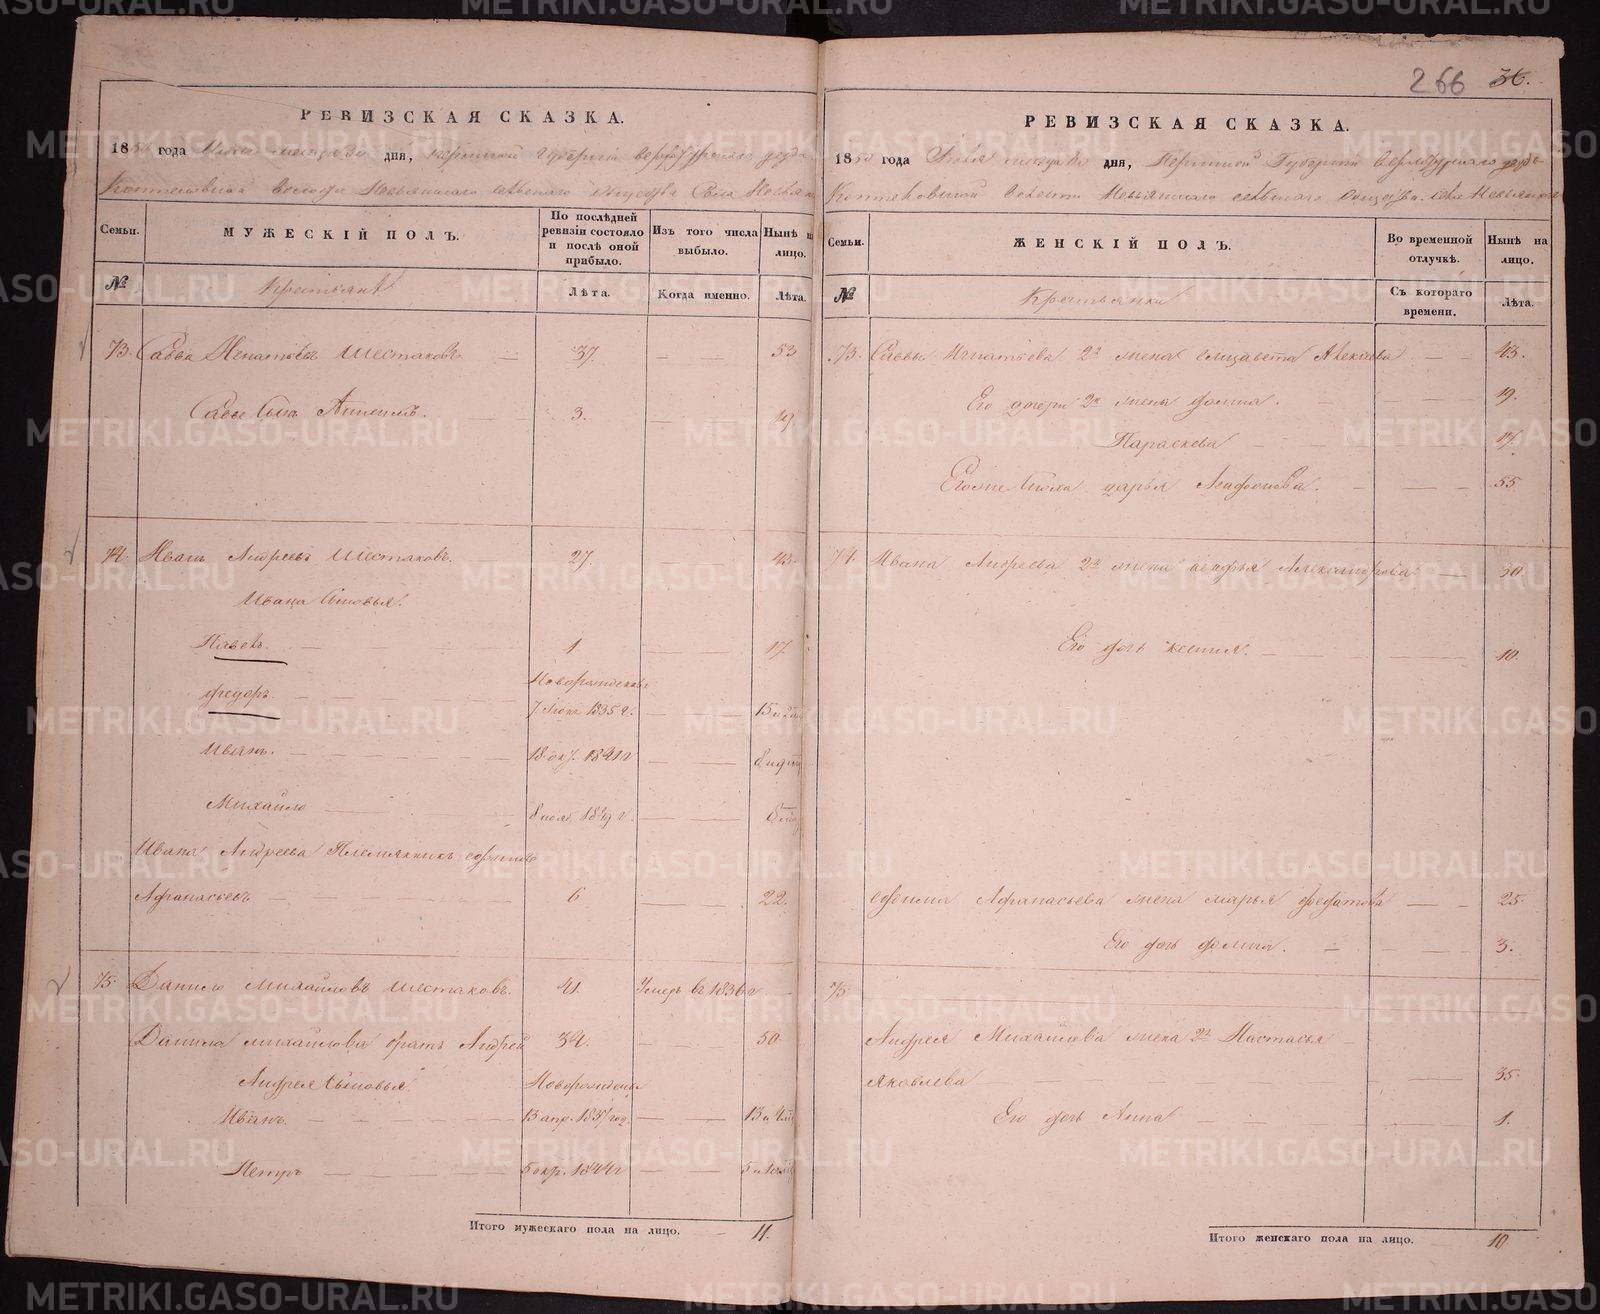 266 36.
РЕВИЗСКАЯ СКАЗКА.
1850 года Июня месяца 30 дня, Пермской Губернiи Верхотурскаго уезда
Коптеловской Волости Невьянскаго сельскаго общества Села Невьянс
Семьи.
МУЖЕСКІЙ ПОЛЪ.
По послѣдней ревизіи состояло и послѣ оной прибыло.
Изъ того числа выбыло.
Нынѣ на лицо.
№
Крестьяне
Лѣта.
Когда именно.
Лѣта.
73. Савва Игнатьевъ Шестаковъ 37. 53
Савы Сынъ 3. 19
74. Иванъ Андреевъ Шестаковъ. 27. 43.
Ивана Сыновья.
Павелъ. 1 17
Новорожденные
Федоръ. 1835 г. 15
Иванъ. 18 окт. 1841 г 8
Михайло 8 нояб. г.
Ивана Андреева Племянникъ Ефимъ
Афанасьевъ 6 22.
75. Данило Михайловъ Шестаковъ. 41. Умеръ въ 1836 г
Данила Михайлова братъ Андрей 34. 50
Андрея Сыновья Новорожден
Иванъ. 13 апр. 1837 год. 13
Петръ 5 окт. 1844 г 5
Итого мужескаго пола на лицо. 11.
РЕВИЗСКАЯ СКАЗКА.
1850 года Июня месяца 30 дня, Пермской Губернiи Верхотурскаго уезда
Коптеловской Волости Невьянскаго сельскаго общества. Села Невьянска
Семьи.
ЖЕНСКІЙ ПОЛЪ.
Во временной отлучкѣ.
Нынѣ на лицо.
№
Крестьянки
Съ котораго времени.
Лѣта.
73. Саввы Игнатьева 2я жена Елизавета Алексеева 43.
Его дочери 2й жены Фолина. 19.
Параскева 17.
Егоже Сноха Дарья Агафонова. 55
74. Ивана Андреева 2я жена Агафья Александрова 30
Его дочь Ксения. 10.
Ефима Афанасьева жена Марья 25
Его дочь 3.
75
Андрея Михайлова жена 2я Настасья
Яковлева 35.
Его дочь Анна 1.
Итого женскаго пола на лицо. 10.
METRIKI.GASO-URAL.RU